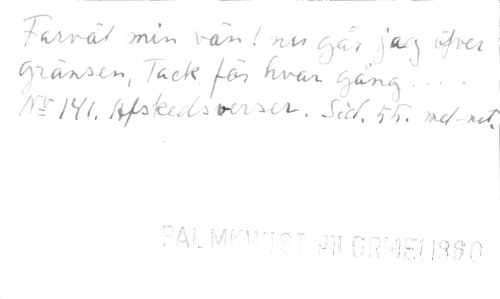 Farväl min vän! nu går jag öfver
gränsen, Tack för hvar gång ....
Nr 141. Afskedsverser. Sid. 55. mel-not.
PALMKWIST PILGRME 1860